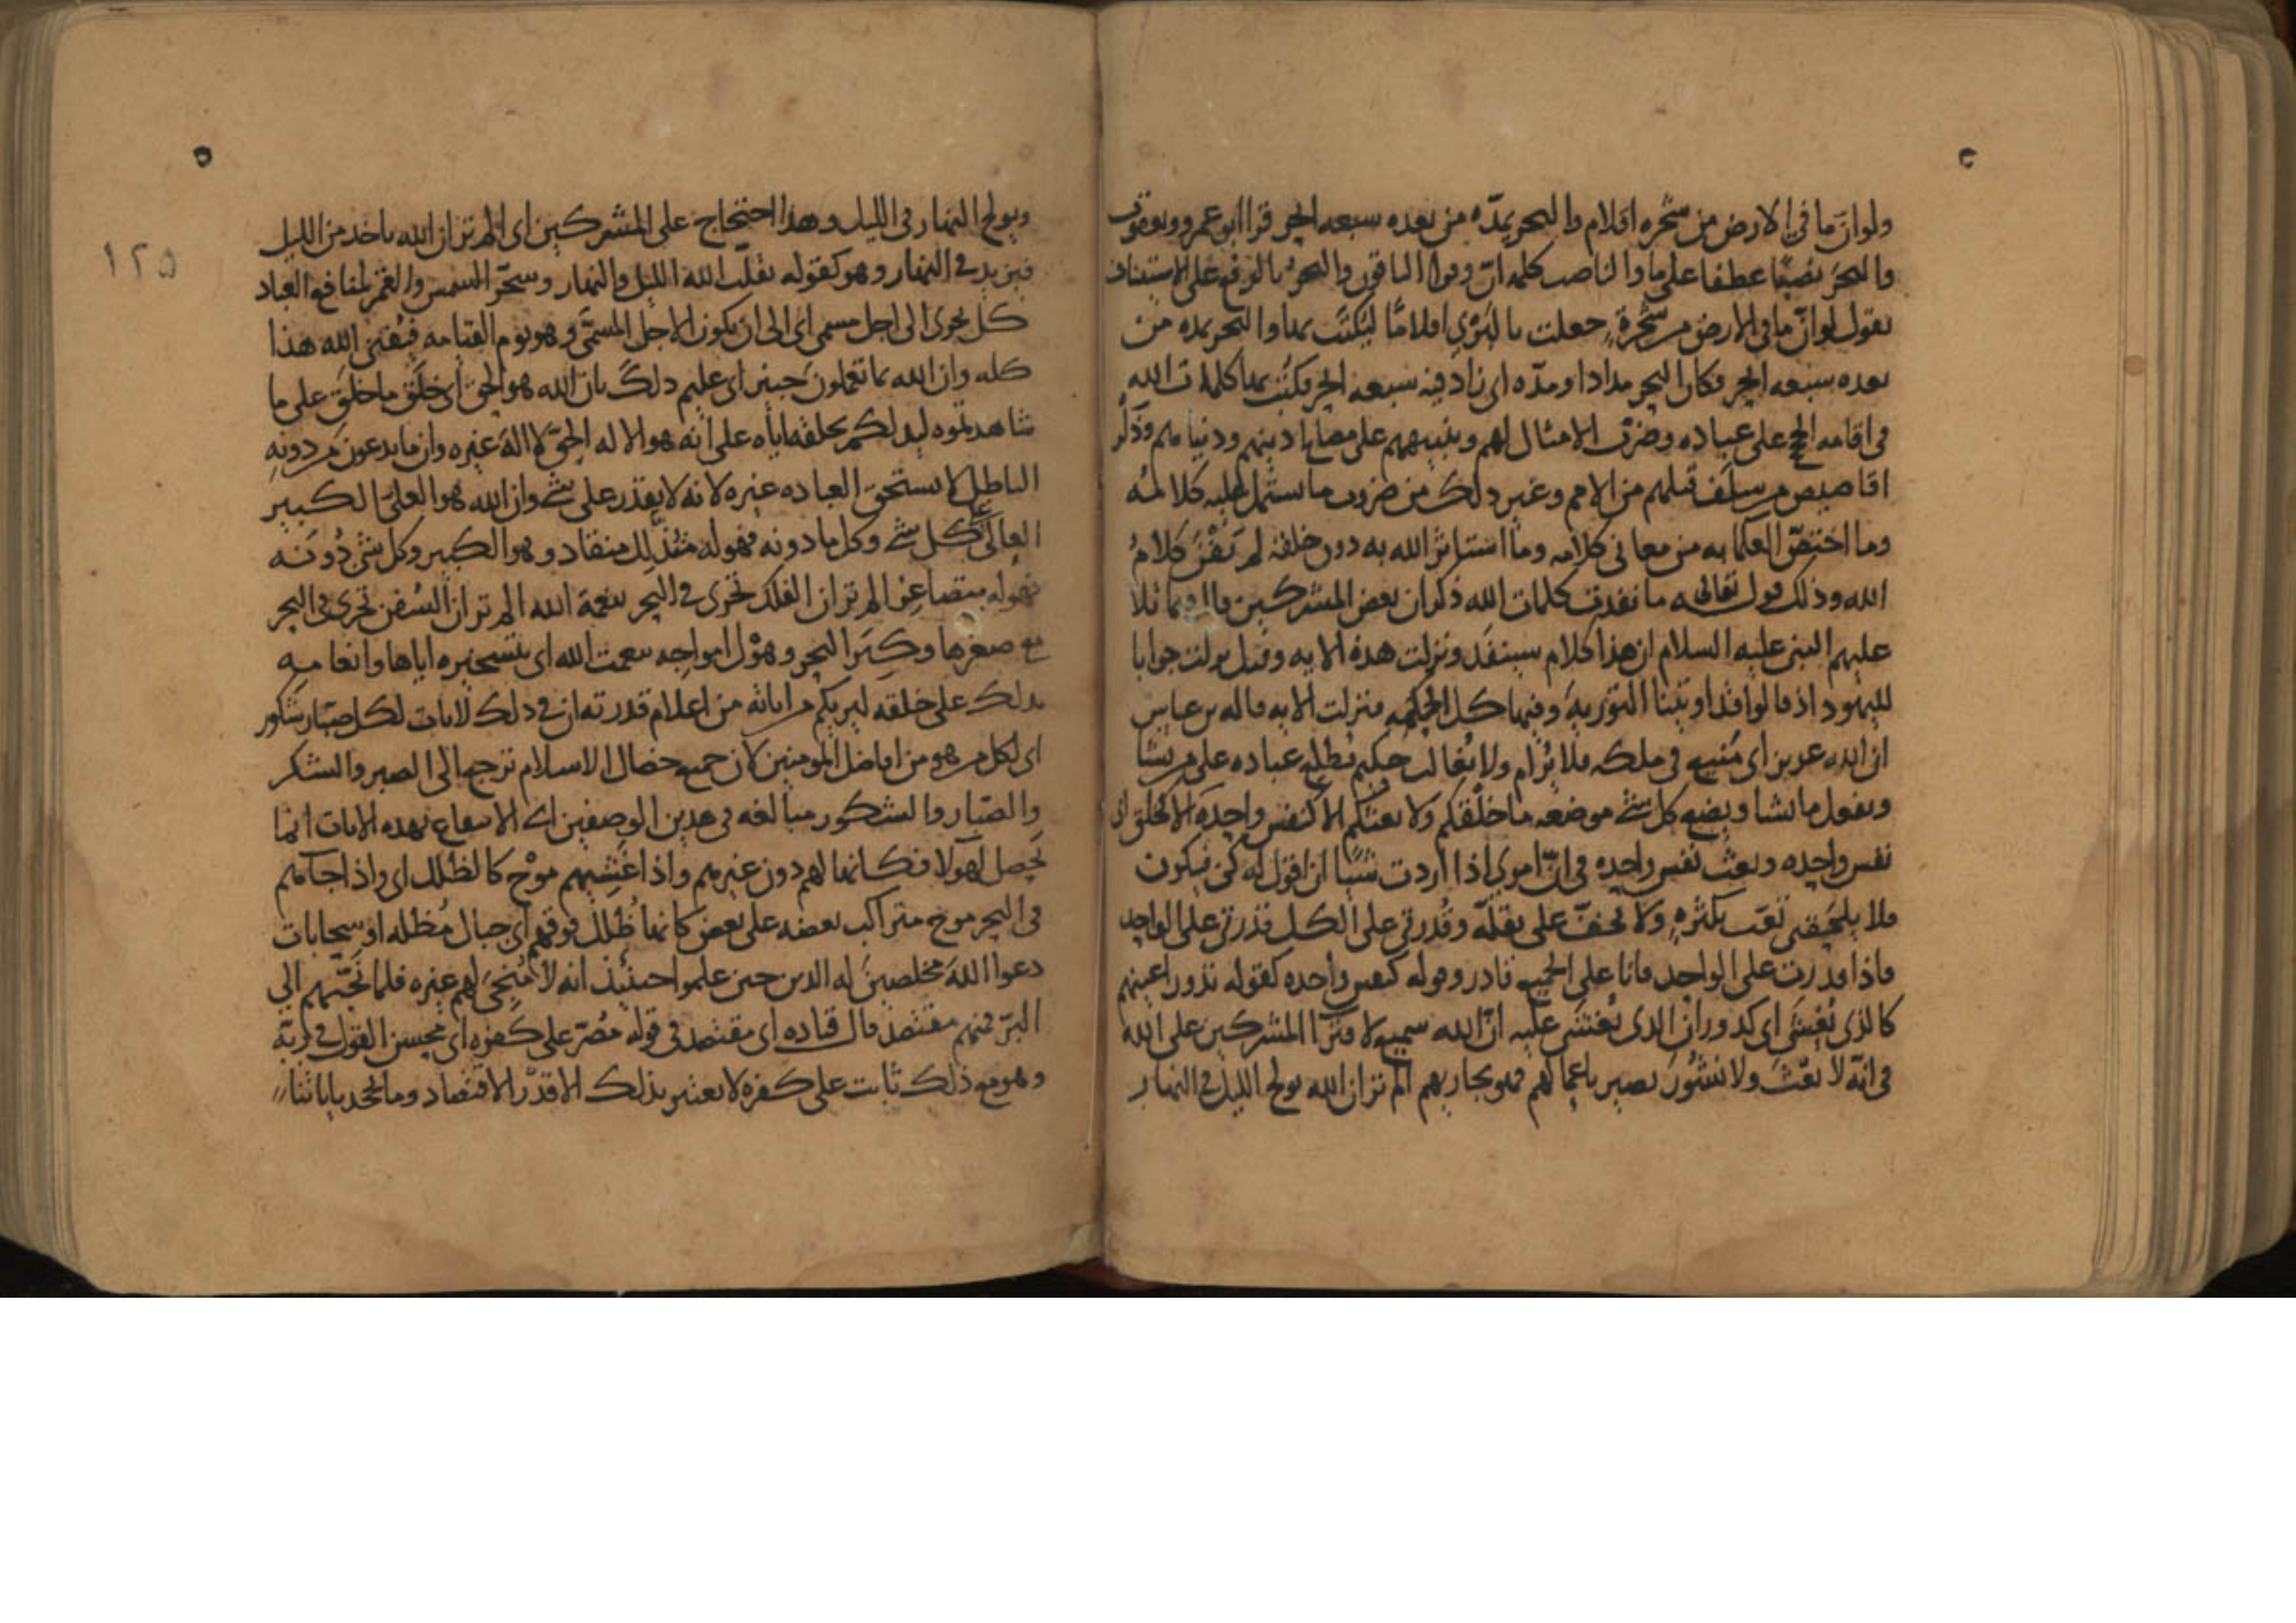 ولو ان ما في الارض من شجره اقلام والبحر يمدّه من بعده سبعه ابحر قرا ابو عمرو ويعقوب
والبحرَ نصبًا عطفا على ما والناصب كلمه انّ وقرا الباقون والبحرُ بالرفع على الاستيناف
يقول لو انّ ما في الارض من شجرةٍ جعلت بالبَرْيِ اقلامًا ليَكتُب بها والبحر يمده من
بعده سبعه ابحر فكان البحر مدادا ومدّه اى زاد فيه سبعه ابحر يكتب بها كلمات الله
في اقامه الحجج على عباده وضرب الامثال لهم وتنبيههم على مصالح دينهم ودنياهم وذكر
اقاصيص من سلف قبلهم من الامم وغير ذلك من ضروب ما يشتمل عليه كلامُه
وما اختصّ العلما به من معاني كلامه وما استاثر الله به دون خلقه لم يَفْنَ كلامُ
الله وذلك قوله تعالى ما نفدت كلمات الله ذكر ان بعض المشركين قال فيما تلا
عليهم النبى عليه السلام ان هذا كلام سينفَد ونزلت هذه الايه وقيل نزلت جوابا
لليهود اذ قالوا قد اوتينا التوريهَ وفيها كل الحكمه فنزلت الايه قاله بن عباس
ان الله عزيز اى مَنيع في ملكه فلا يُرام ولا يُغالب حكيم عباده على من يشا
ويفعل ما يشا ويضع كل شى موضعه ما خلقكم ولا بعثكم الا كنفس واحدة الا كخلق
نفس واحده وبعث نفس واحده في انّ امرى اذا اردت شيئًا ان اقول له كن فيكون
فلا يلحقنى تعب بكثرهٍ ولا يخفّ على بقلّه وقُدرتى على الكل قدرتى على الواحد
فاذا قدرت على الواحد فانا على الجميع قادر وقوله كنفس واحده كقوله تدور اعينهم
كالذى يُغشَى اى كدوران الذى يُغشَى عليه انّ الله سميع لافترا المشركين على الله
في انّه لا بعْثَ ولا نشُورَ بصير باعمالهم فهو مجازيهم الم تر ان الله يولج الليل في النهار
ويولج النهار في الليل وهذا احتجاج على المشركين اى الم تر ان الله ياخذ من الليل
فيزيد في النهار وهو كقوله يقلّب الله الليل والنهار وسخّر الشمس والقمر لمنافع العباد
كل يجرى الى اجل مسمى اى الى ان يكون الاجل المسمَّى وهو يوم القيامه فيُفنى الله هذا
كله وان الله بما تعملون خبير اى عليم ذلك بان الله هو الحق اى خلَق ما خلَق على ما
شاهدتموه ليدلكم بخلقه اياه على انه هو الاله الحقّ لا الهَ غيره وان ما يدعون من دونهِ
الباطل لا يستحق العباده غيره لانه لا يقدر على شى وان الله هو العلىّ الكبير
العالى على كل شى وكل ما دونه فهو له متذلِلّ منقاد وهو الكبير وكل شى دُونَه
فهو له متصاغِر الم تر ان الفلك تجرى في البحر بنعمة الله الم تر ان السُفن تجرى في البحر
مع صغرها وكِبَر البحر وهوْل امواجه بنعمت الله اى بتسخيره اياها وانعامه
بذلك على خلقه ليريكم من اياته من اعلام قدرته ان في ذلك لايات لكل صبّار شكور
اى لكل من هو من افاضل المومنين لان جميع خصال الاسلام ترجع الى الصبر والشكر
والصبّار والشكور مبالغه في هذين الوصفين اى الانتفاع بهذه الايات انما
يَحصل لهولا فكانها لهم دون غيرهم واذا غَشِيهم موْج كالظلل اى واذا جاهم
في البحر موج متراكب بعضه على بعض كانها ظُلَل فوقهم اى جبال مُظله او سحابات
دعوا اللهَ مخلصينَ له الدين حين علموا حينئذ انه لا مُنجىَ لهم غيره فلما نَجّيهم الى
البرّ فمنهم مقتصد قال قتاده اى مقتصد في قوله مُصّر على كفره اى يُحسن القول في ربّه
وهو مع ذلك ثابت على كفره لا يعتبر بذلك الا قدْر الاقتصاد وما يجحد باياتنا
١٢٥